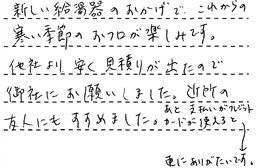 新しい給湯器のおかげで、これからの
寒い季節のお風呂が楽しみです。
他社より安く見積りが出たので
御社にお願いしました。近所の
友人にもすすめました。
あと、支払いがクレジット
カードが使えると
更にありがたいです。